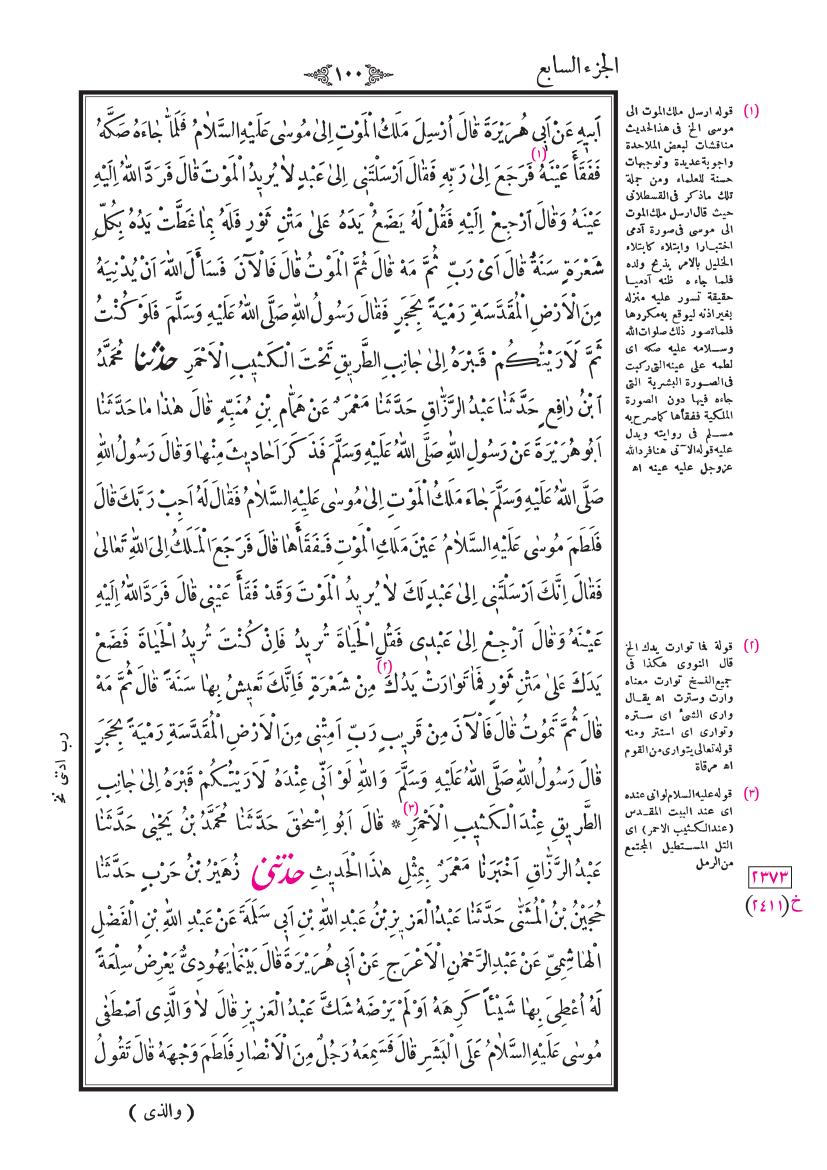 الجزء السابع
١٠٠
اَبيهِ عَنْ اَبي هُرَيْرَةَ قالَ اُرْسِلَ مَلَكُ الْمَوْتِ اِلىٰ مُوسٰى عَلَيْهِ السَّلاٰمُ فَلَمّاٰ جٰاءَهُ صَكَّهُ
فَفَقَأَ عَيْنَهُ (١) فَرَجَعَ اِلىٰ رَبِّهِ فَقٰالَ اَرْسَلْتَنى اِلىٰ عَبْدٍ لاٰ يُريدُ الْمَوْتَ قالَ فَرَدَّ اللهُ اِلَيْهِ
عَيْنَهُ وَقالَ ٱرْجِعْ اِلَيْهِ فَقُلْ لَهُ يَضَعُ يَدَهُ عَلىٰ مَتْنِ ثَوْرٍ فَلَهُ بِمٰا غَطَّتْ يَدُهُ بِكُلِّ
شَعْرَةٍ سَنَةٌ قالَ اَىْ رَبِّ ثُمَّ مَهْ قالَ ثُمَّ الْمَوْتُ قالَ فَالْآنَ فَسَأَلَ اللهَ اَنْ يُدْنِيَهُ
مِنَ الْاَرْضِ الْمُقَدَّسَةِ رَمْيَةً بِحَجَرٍ فَقالَ رَسُولُ اللهِ صَلَّى اللهُ عَلَيْهِ وَسَلَّمَ فَلَوْ كُنْتُ
ثَمَّ لَاَرَيْتُكُمْ قَبْرَهُ اِلىٰ جانِبِ الطَّريقِ تَحْتَ الْكَثيبِ الْاَحْمَرِ حدثنا مُحَمَّدُ
ٱبْنُ رافِعٍ حَدَّثَنٰا عَبْدُ الرَّزّٰاقِ حَدَّثَنٰا مَعْمَرٌ عَنْ هَمّٰامِ بْنِ مُنَبِّهٍ قالَ هٰذٰا مٰا حَدَّثَنٰا
اَبُو هُرَيْرَةَ عَنْ رَسُولِ اللهِ صَلَّى اللهُ عَلَيْهِ وَسَلَّمَ فَذَكَرَ اَحٰاديثَ مِنْهٰا وَقالَ رَسُولُ اللهِ
صَلَّى اللهُ عَلَيْهِ وَسَلَّمَ جٰاءَ مَلَكُ الْمَوْتِ اِلىٰ مُوسٰى عَلَيْهِ السَّلاٰمُ فَقالَ لَهُ اَجِبْ رَبَّكَ قالَ
فَلَطَمَ مُوسٰى عَلَيْهِ السَّلاٰمُ عَيْنَ مَلَكِ الْمَوْتِ فَفَقَأَهٰا قالَ فَرَجَعَ الْمَلَكُ اِلَى اللهِ تَعٰالىٰ
فَقالَ اِنَّكَ اَرْسَلْتَنى اِلىٰ عَبْدٍ لَكَ لاٰ يُريدُ الْمَوْتَ وَقَدْ فَقَأَ عَيْنى قالَ فَرَدَّ اللهُ اِلَيْهِ
عَيْنَهُ وَقالَ ٱرْجِعْ اِلىٰ عَبْدى فَقُلِ الْحَيٰاةَ تُريدُ فَاِنْ كُنْتَ تُريدُ الْحَيٰاةَ فَضَعْ
يَدَكَ عَلىٰ مَتْنِ ثَوْرٍ فَمٰا تَوٰارَتْ يَدُكَ (٢) مِنْ شَعْرَةٍ فَاِنَّكَ تَعيشُ بِهٰا سَنَةً قالَ ثُمَّ مَهْ
قالَ ثُمَّ تَمُوتُ قالَ فَالْآنَ مِنْ قَريبٍ رَبِّ اَمِتْنى مِنَ الْاَرْضِ الْمُقَدَّسَةِ رَمْيَةً بِحَجَرٍ
قالَ رَسُولُ اللهِ صَلَّى اللهُ عَلَيْهِ وَسَلَّمَ وَاللهِ لَوْ اَنّى عِنْدَهُ لَاَرَيْتُكُمْ قَبْرَهُ اِلىٰ جانِبِ
الطَّريقِ عِنْدَ الْكَثيبِ الْاَحْمَرِ (٣) * قالَ اَبُو اِسْحٰقَ حَدَّثَنٰا مُحَمَّدُ بْنُ يَحْيٰى حَدَّثَنٰا
عَبْدُ الرَّزّٰاقِ اَخْبَرَنٰا مَعْمَرٌ بِمِثْلِ هٰذَا الْحَديثِ حدثنى زُهَيْرُ بْنُ حَرْبٍ حَدَّثَنٰا
حُجَيْنُ بْنُ الْمُثَنّٰى حَدَّثَنٰا عَبْدُ الْعَزيزِ بْنُ عَبْدِ اللهِ بْنِ اَبى سَلَمَةَ عَنْ عَبْدِ اللهِ بْنِ الْفَضْلِ
الْهاشِمِىِّ عَنْ عَبْدِ الرَّحْمٰنِ الْاَعْرَجِ عَنْ اَبى هُرَيْرَةَ قالَ بَيْنَمٰا يَهُودِىٌّ يَعْرِضُ سِلْعَةً
لَهُ اُعْطِىَ بِهٰا شَيْئاً كَرِهَهُ اَوْ لَمْ يَرْضَهُ شَكَّ عَبْدُ الْعَزيزِ قالَ لاٰ وَالَّذى ٱصْطَفٰى
مُوسٰى عَلَيْهِ السَّلاٰمُ عَلَى الْبَشَرِ قالَ فَسَمِعَهُ رَجُلٌ مِنَ الْاَنْصٰارِ فَلَطَمَ وَجْهَهُ قالَ تَقُولُ
( والذى )
(١) قوله ارسل ملك الموت الى
موسى الخ فى هذا الحديث
مناقشات لبعض الملاحدة
واجوبة عديدة وتوجيهات
حسنة للعلماء ومن جملة
تلك ماذكر فى القسطلانى
حيث قال ارسل ملك الموت
الى موسى فى صورة آدمى
اختبارا وابتلاء كابتلاء
الخليل بالامر بذبح ولده
فلما جاءه ظنه آدميا
حقيقة تسور عليه منزله
بغير اذنه ليوقع به مكروها
فلما تصور ذلك صلوات الله
وسلامه عليه صكه اى
لطمه على عينه التى ركبت
فى الصورة البشرية التى
جاءه فيها دون الصورة
الملكية ففقأها كما صرح به
مسلم فى روايته ويدل
عليه قوله الآتى هنا فرد الله
عزوجل عليه عينه اھ
(٢) قوله فما توارت يدك الخ
قال النووى هكذا فى
جميع النسخ توارت معناه
وارت وسترت اھ يقال
وارى الشئ اى ستره
وتوارى اى استتر ومنه
قوله تعالى يتوارى من القوم
اھ مرقاة
(٣) قوله عليه السلام لو انى عنده
اى عند البيت المقدس
(عند الكثيب الاحمر) اى
التل المستطيل المجتمع
من الرمل
٢٣٧٣
خ (٢٤١١)
رب ادننى نخ